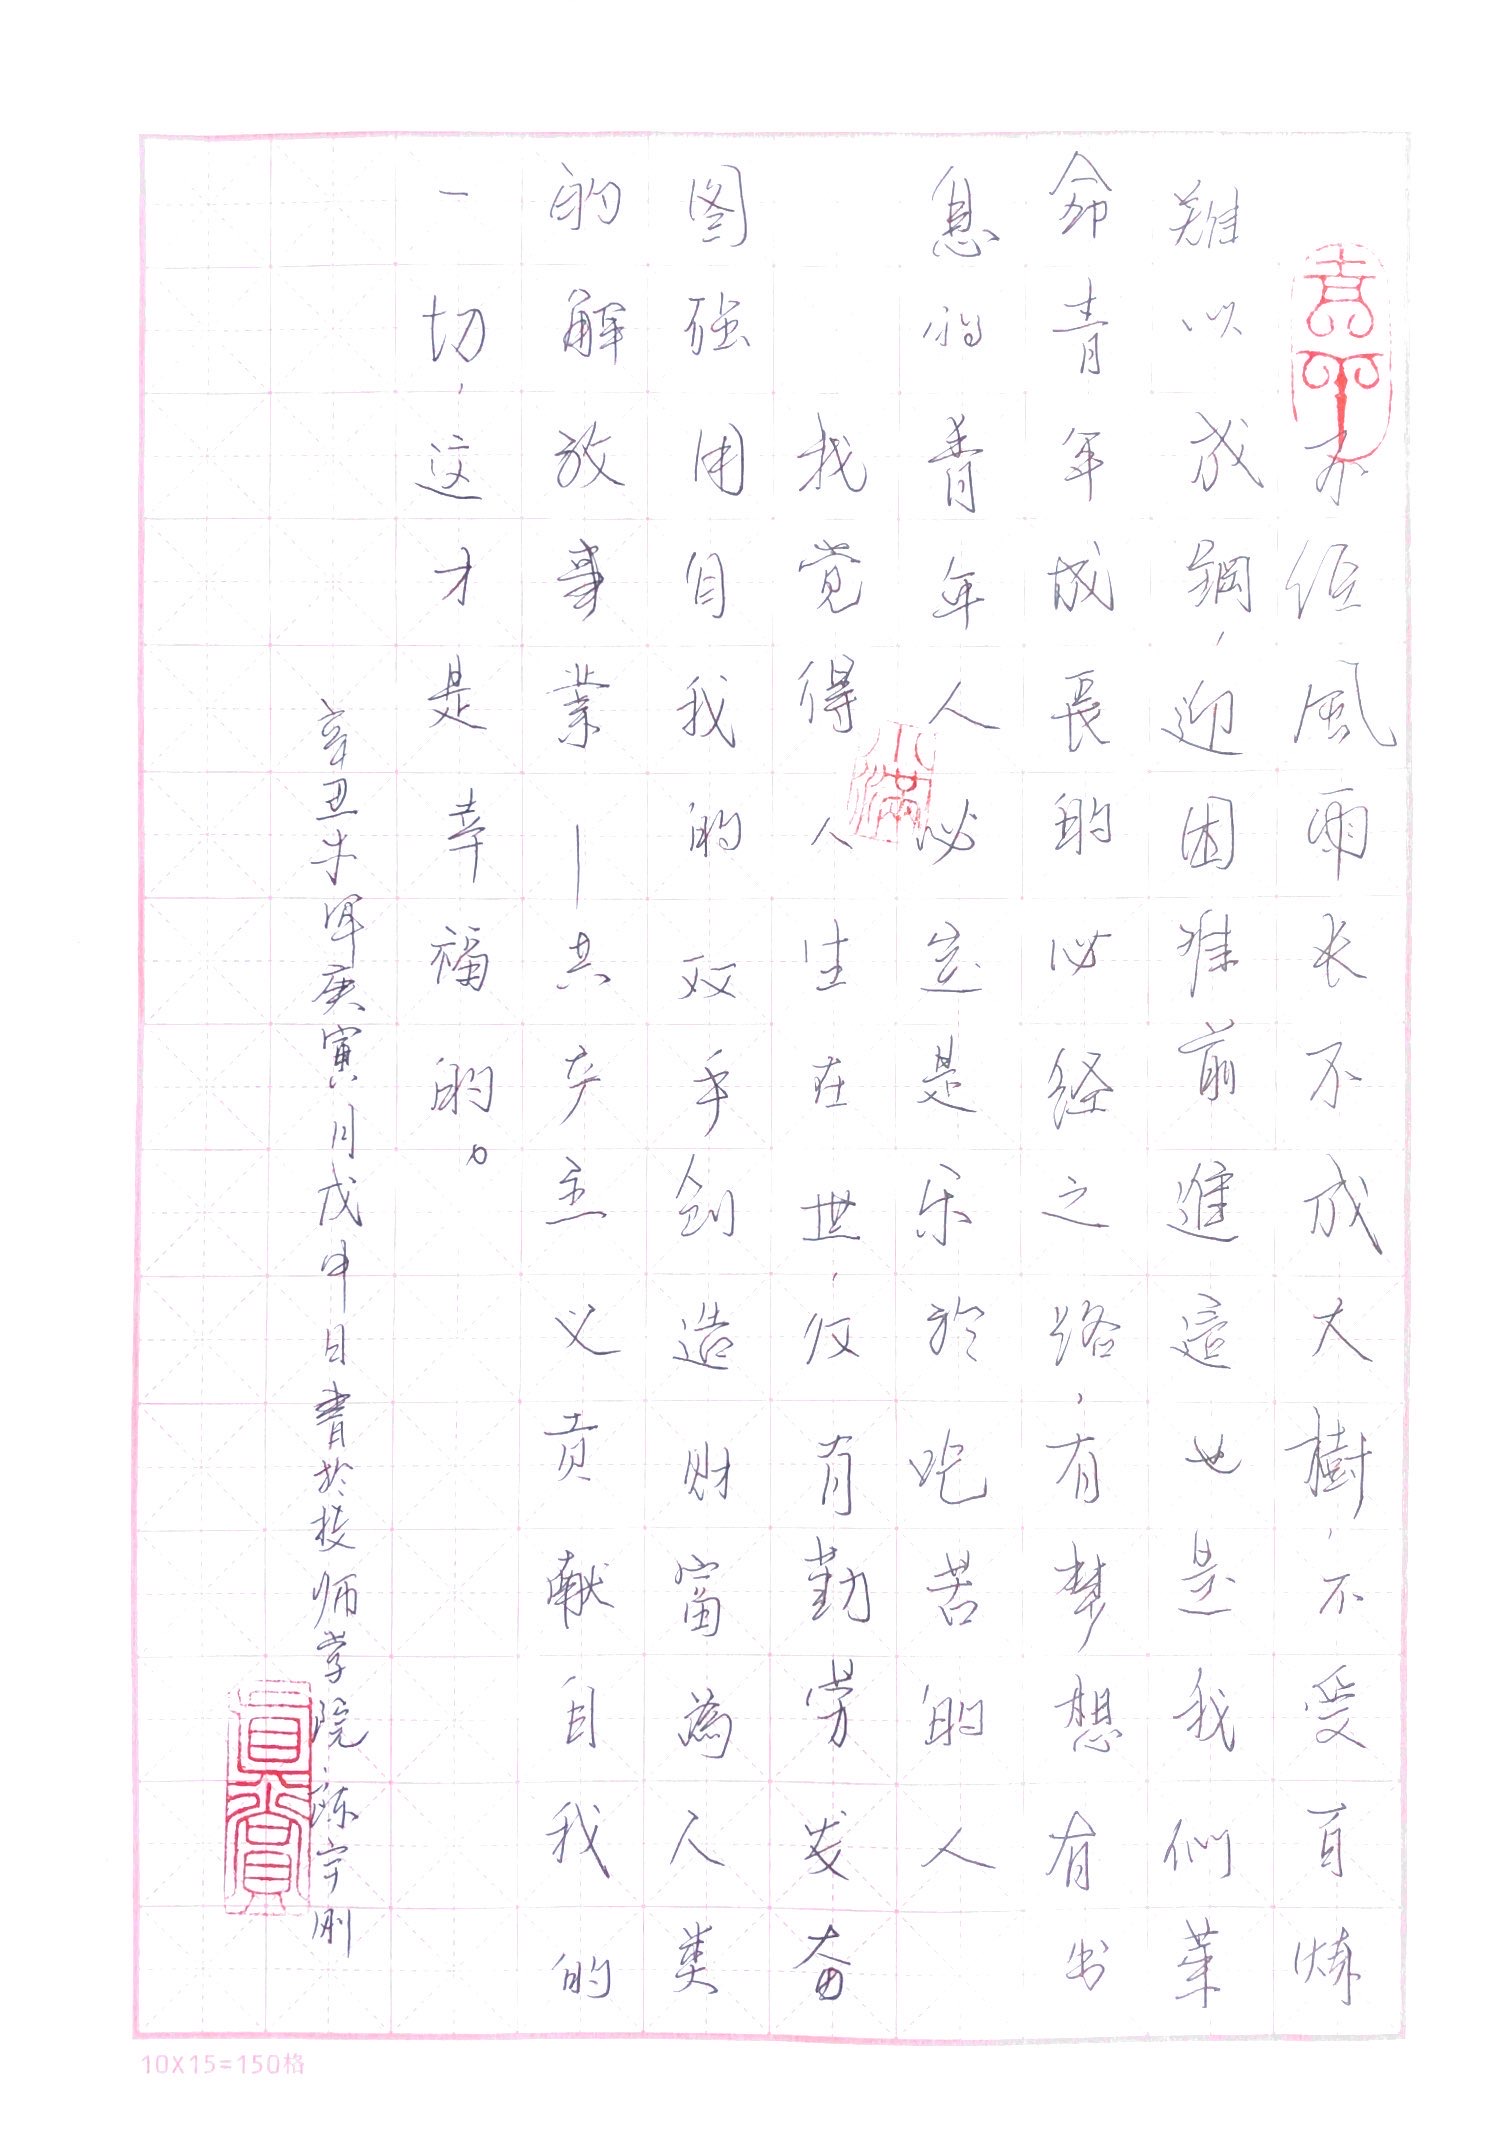 不经風雨长不成大樹，不受百煉
难以成鋼，迎困难前進這也是我們革
命青年成長的必经之路，有梦想有出
息的青年人必定是乐於吃苦的人
我觉得人生在世，仅有勤劳发奋
图强用自我的双手创造财富為人类
的解放事業—共产主义貢献自我的
一切，这才是幸福的。
辛丑牛年庚寅月戊申日書於技师学院陈宇刚
小满
10X15=150格